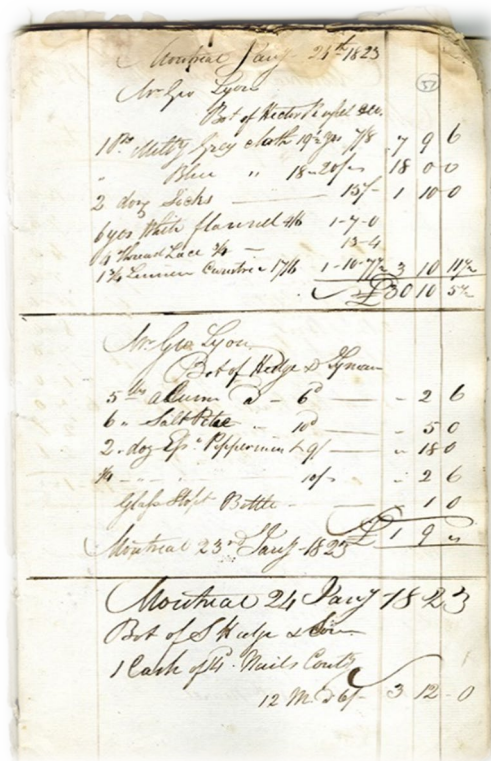 Montreal Jany 24th 1823
52
Mr Geo Lyon
Bot of Hector &co.
1 ps Grey cloth 19½ yds 7/8 7 9 6
" Blue " 18 - 20/- 18 0 0
2 doz 15/- 1 10 0
6 yds White flannel 4/6 1-7-0
4 Thread Lace ¾ — 13-4
1¾ Linnen 17/6 1-10-7½ 3 10 11½
£30 10 5½
Mr Geo Lyon
Bot of Hedge & Lyman
5 lbs allum a 6d — " 2 6
6 " Salt Petre 10d — " 5 0
2 - doz Ess " Peppermint 9/ — " 18 0
¼ - " - " - 10/- — " 2 6
Glass Stopt Bottle — 1 0
Montreal 23rd Jany 1823 £ 1 9 "
Montreal 24 Jany 1823
Bot of S Hedge & Son
1 Cask of Nails
12 M a 6/- 3 12 - 0